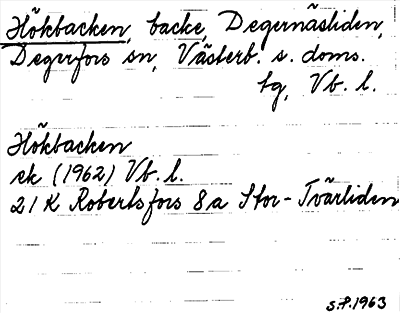 Hökbacken, backe, Degernäsliden,
Degerfors sn, Västerb. s. doms.
tg, Vb. l.
Hökbacken
ek (1962) Vb. l.
21 K Robertsfors 8 a Stor-Tvärliden
S.P. 1963